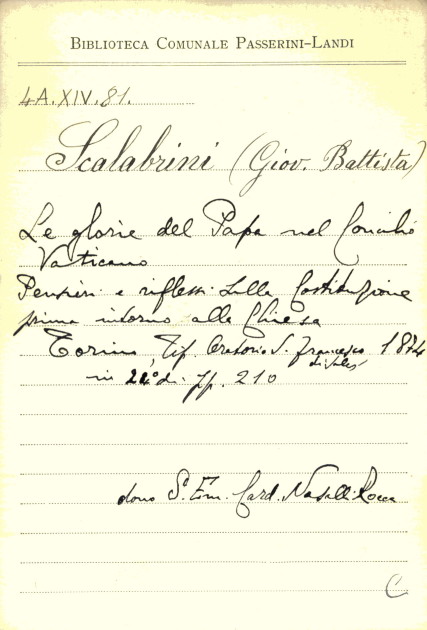 BIBLIOTECA COMUNALE PASSERINI-LANDI
4A.XIV.81.
Scalabrini (Giov. Battista)
Le glorie del Papa nel Concilio
Vaticano
Pensieri e rifless. sulla Costituzione
prima intorno alla Chiesa
Torino, Tip. Oratorio S. Francesco 1874
di Sales
in 24º di pp. 210
dono S. Em. Card. Nasalli-Rocca
C